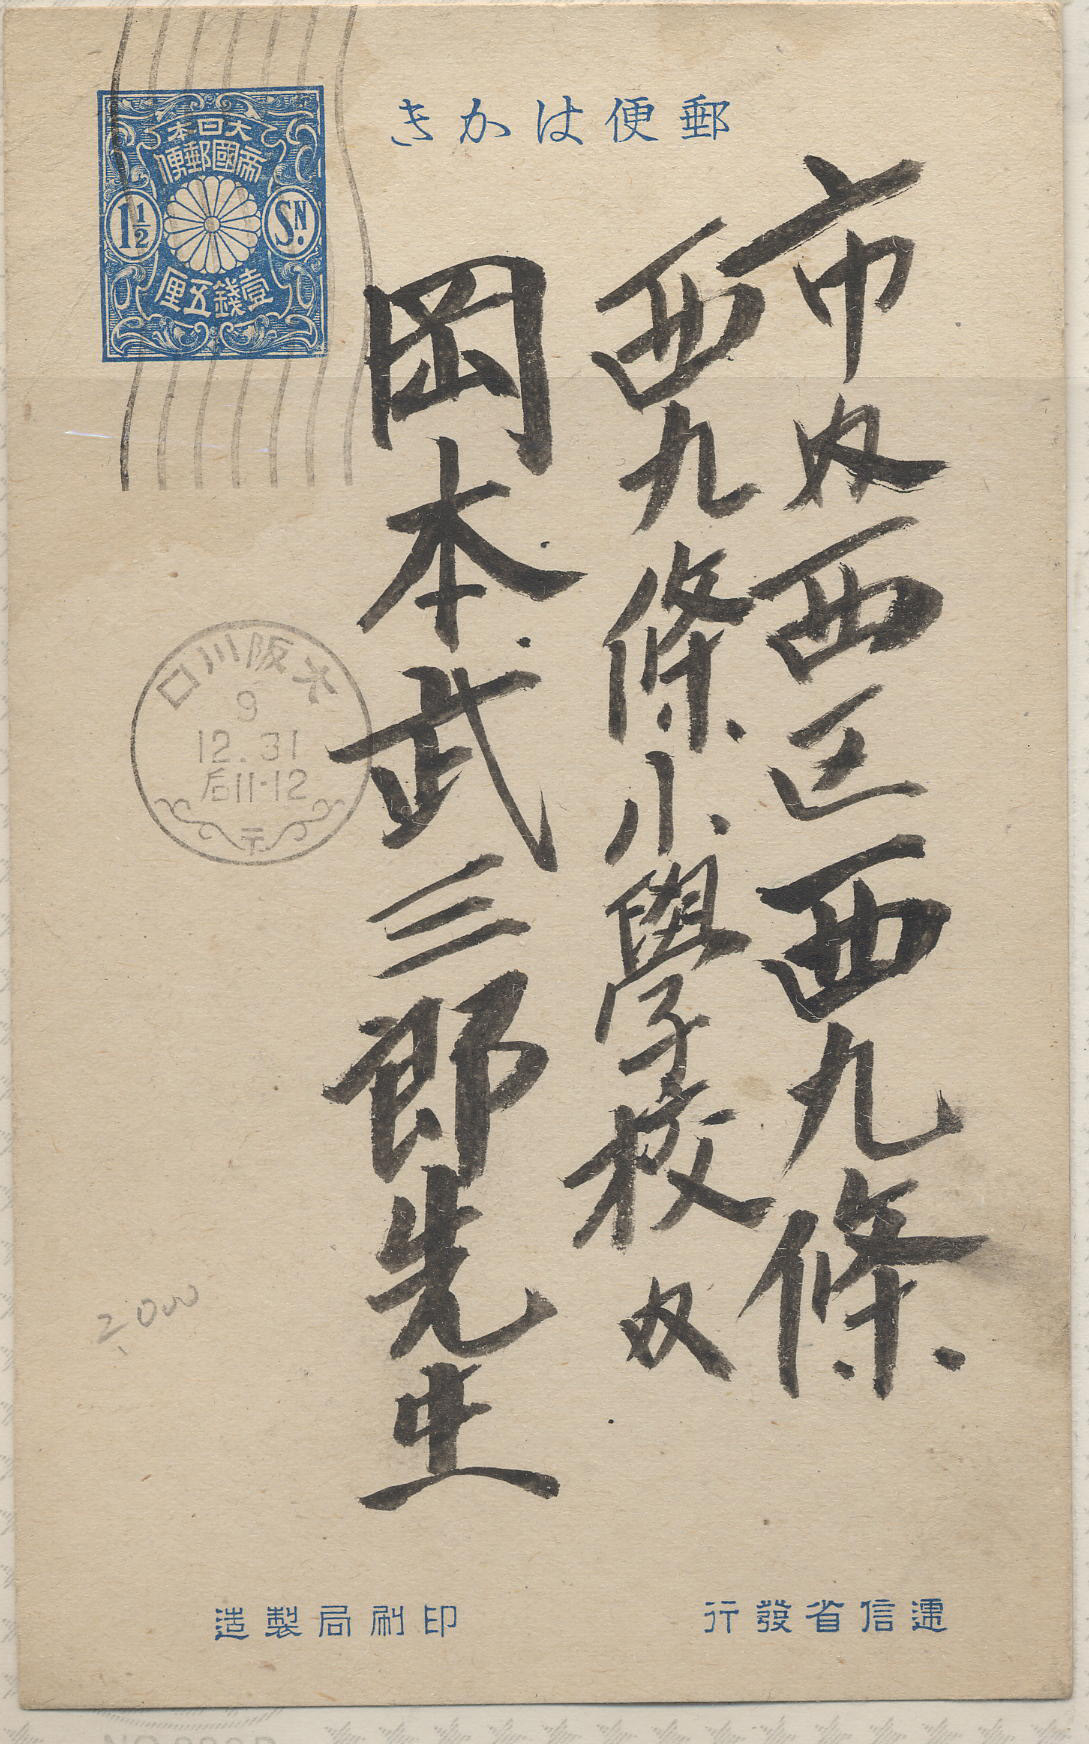 郵便はかき
大日本
帝國郵便
1½
SN.
壹錢五厘
市内西区西九條
西九條小學校内
岡本武三郎先生
大阪川口
9
12.31
后11-12
〒
2000
逓信省發行
印刷局製造